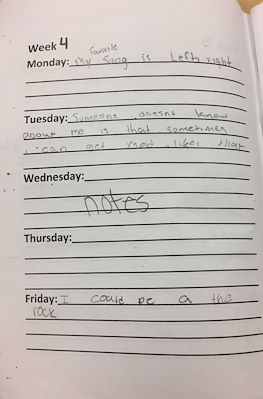 Week 4
favorite
Monday: My song is Left, right
Tuesday: Someone doesnt know
about me is that sometimes
I can get mad like that
Wednesday:
notes
Thursday:
Friday: I could be a the
rock